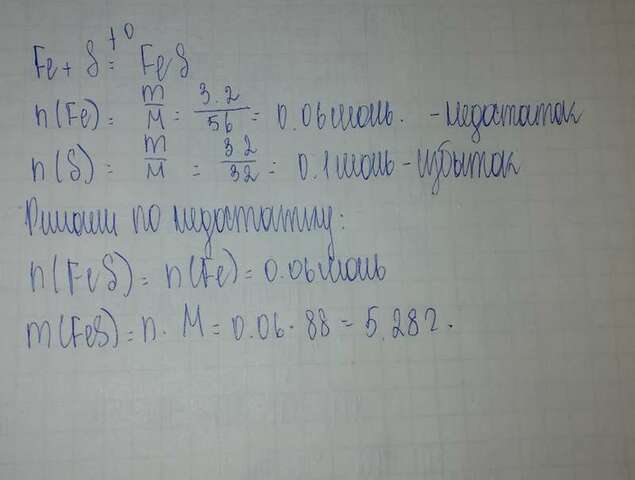 Fe + S =^t° FeS
n(Fe) = m/M = 3.2/56 = 0.06 моль. - недостаток
n(S) = m/M = 3.2/32 = 0.1 моль - избыток
Решаем по недостатку:
n(FeS) = n(Fe) = 0.06 моль
m(FeS) = n · M = 0.06 · 88 = 5.28 г.